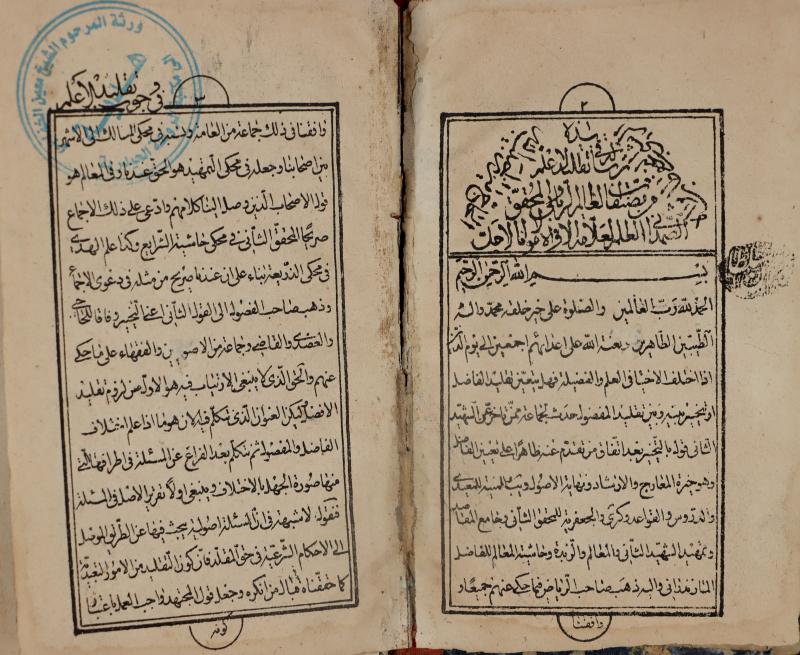 ٢
هذه
رسالة في تقليد الاعلم
من مصنفات العالم الرباني والمحقق
الصمداني العالم العلامة
بسم الله الرحمن الرحيم
الحمد لله رب العالمين والصلوة على خير خلقه محمد واله
الطيبين الطاهرين ولعنة الله على اعدائهم اجمعين الى يوم الدين
اذا اختلف الاحياء في العلم والفضيلة فهل يتعين تقليد الفاضل
او يتخير بينه وبين تقليد المفضول حدث لجماعة ممن تاخر عن الشهيد
الثاني قول بالتخيير بعد اتفاق من تقدم عنه ظاهرا على تعيين الفاضل
وهو خيرة المعارج والارشاد ونهاية الاصول والتهذيب والمنية للعميدي
والدروس والقواعد والذكرى والجعفرية للمحقق الثاني وجامع المقاصد
وتمهيد الشهيد الثاني والمعالم والزبدة وحاشية المعالم للفاضل
المازندراني واليه ذهب صاحب الرياض فيما حكي عنهم جميعا و
وافقنا
٣
في وجوب تقليد الاعلم
وافقنا في ذلك جماعة من العامة ونسبه في محكي المسالك الى الاشهر
بين اصحابنا وجعله في محكي التمهيد هو الحق عندنا وفي المعالم هو
قول الاصحاب الذين وصل الينا كلامهم وادعى على ذلك الاجماع
صريحا المحقق الثاني في محكي حاشية الشرايع وكذا علم الهدى
في محكي الذريعة بناء على ان عندنا صريح من مثله في دعوى الاجماع
وذهب صاحب الفصول الى القول الثاني اعني التخيير وفاقا للحاجبي
والعضدي والقاضي وجماعة من الاصوليين والفقهاء على ما حكي
عنهم والحق الذي لا ينبغي الارتياب فيه هو الاول من لزوم تقليد
الافضل وليكن العنوان الذي نتكلم فيه الان هو ما اذا علم اختلاف
الفاضل والمفضول ثم نتكلم بعد الفراغ عن المسئلة في اطرافها التي
منها صورة الجهل بالاختلاف وينبغي اولا تقرير الاصل في المسئلة
فنقول لا شبهة في ان المسئلة اصولية يبحث فيها عن الطريق الموصل
الى الاحكام الشرعية في حق المقلد فان كون التقليد من الامور التعبدية
كما حققناه قبال من انكره وجعل قول المجتهد واجب العمل باعتبار
كونه